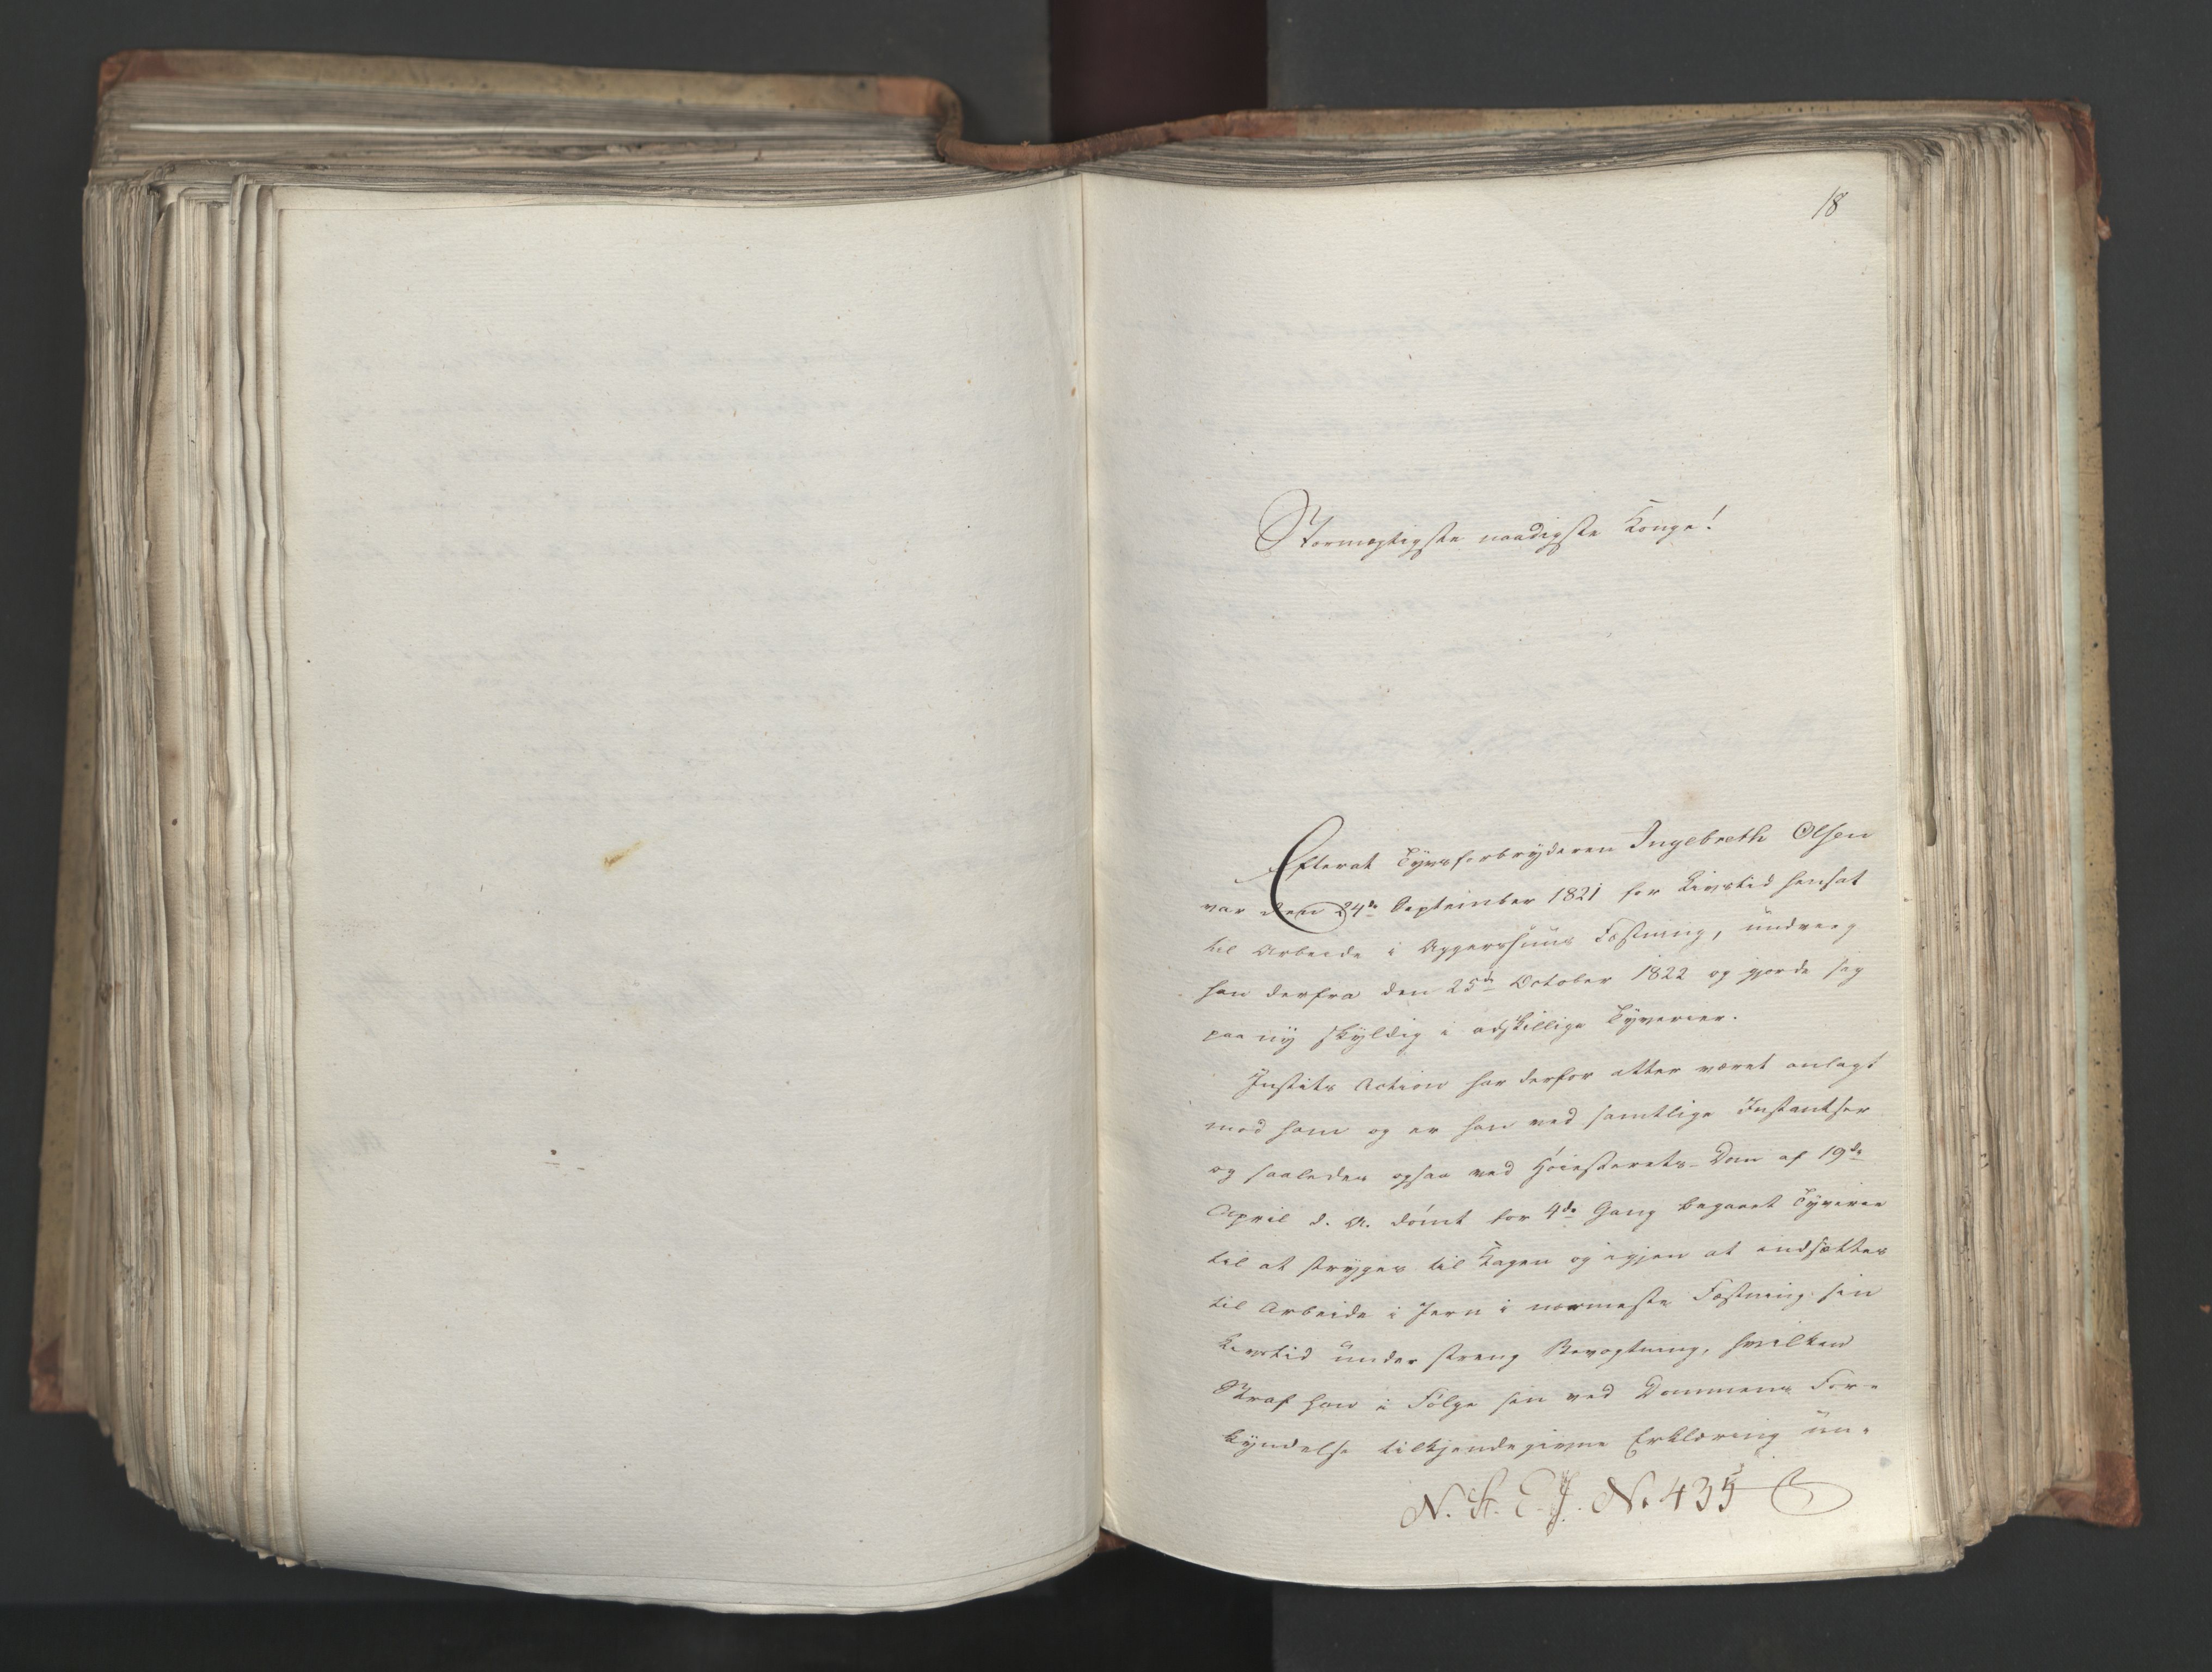 18
Stormægtigste naadigste Konge!
Efterat Tyvsforbryderen Ingebreth Olsen
var den 24de September 1821 for Livstid hensat
til Arbeide i Aggershuus Fæstning, undveeg
han derfra den 25de October 1822 og gjorde sig
paa ny skyldig i adskillige Tyverier.
Justits Action har derfor atter været anlagt
mod ham og er han ved samtlige Instantser
og saaledes ogsaa ved Høiesterets-Dom af 19de
April d. A. dømt for 4de Gang begaaet Tyverie
til at stryges til Kagen og igjen at indsættes
til Arbeide i Jern i nærmeste Fæstning sin
Livstid under streng Bevogtning, hvilken
Straf han i Følge sin ved Dommens For-
kyndelse tilkjendegivne Erklæring un-
N. St. E. J. No 435